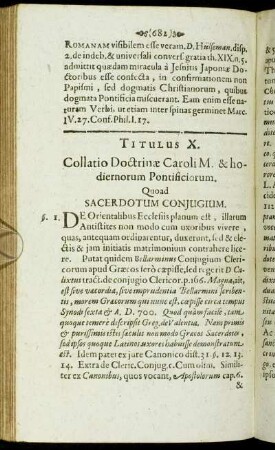 (682)
ROMANAM visibilem esse veram. D. Hulseman. disp.
2. de indeb. & universali convers. gratia th. XIX. n. 5.
admittit quædam miracula à Jesuitis Japoniæ Do-
ctoribus esse confecta, in confirmationem non
Papismi, sed dogmatis Christianorum, quibus
dogmata Pontificia miscuerant. Eam enim esse na-
turam Verbi, ut etiam inter spinas germinet Marc.
IV. 27. Conf. Phil. I. 17.
TITULUS X.
Collatio Doctrinæ Caroli M. & ho-
diernorum Pontificiorum.
Quoad
SACERDOTUM CONJUGIUM.
§. 1. DE Orientalibus Ecclesiis planum est, illarum
Antistites non modo cum uxoribus vivere,
quas, antequam ordinarentur, duxerunt, sed & cle-
ricis & jam initiatis matrimonium contrahere lice-
re. Putat quidem Bellarminus Conjugium Cleri-
corum apud Græcos serò cœpisse, sed regerit D Ca-
lixtus tract. de conjugio Clericor. p. 166. Magna, ait,
est seu vecordia, seu imprudentia Bellarmini scriben-
tis, morem Græcorum qui nunc est, cœpisse circa tempus
Synodi sextæ & A. D. 700. Quod quàm facilè, tam-
quoque temerè descripsit Greg. de Valentia. Nam primis
& purissimis istis sæculis non modo Græcos Sacerdotes,
sed ipsos quoque Latinos uxores habuisse demonstratum
est. Idem patet ex jure Canonico dist. 31 c. 12. 13.
14. Extra de Cleric. Conjug. c. Cum olim. Simili-
ter ex Canonibus, quos vocant, Apostolorum cap. 6.
&